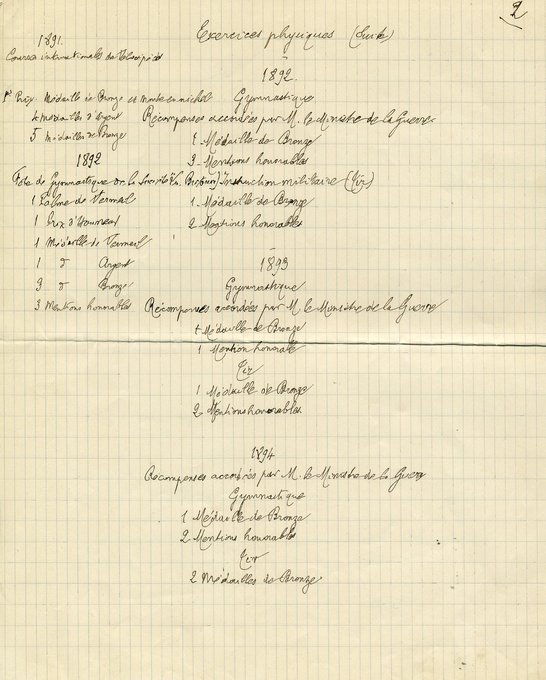 2
Exercices physiques (Suite)
1891.
Courses internationales de Vélocipèdes
1er Prix Médaille de Bronze et montre en nickel
4 médailles d'Argent
5 médailles de Bronze
1892
Fête de Gymnastique de la Société
1 Palme de Vermeil
1 Prix d'Honneur
1 Médaille de Vermeil
1 d° Argent
3 d° Bronze
3 Mentions honorables
1892.
Gymnastique
Récompenses accordées par M. le Ministre de la Guerre
1 Médaille de Bronze
3 Mentions honorables
Instruction militaire (Tir)
1 Médaille de Bronze
2 Mentions honorables
1893
Gymnastique
Récompenses accordées par M. le Ministre de la Guerre
1 Médaille de Bronze
1 Mention honorable
Tir
1 Médaille de Bronze
2 Mentions honorables
1894
Récompenses accordées par M. le Ministre de la Guerre
Gymnastique
1 Médaille de Bronze
2 Mentions honorables
Tir
2 Médailles de Bronze